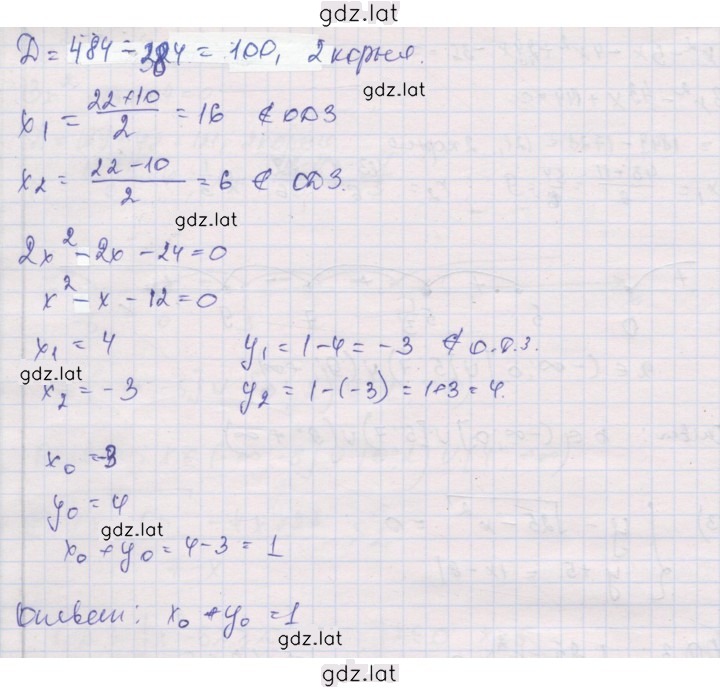 gdz.lat
D = 484 - 384 = 100, 2 корня.
gdz.lat
x₁ = (22+10)/2 = 16 ∉ ОДЗ
x₂ = (22-10)/2 = 6 ∉ ОДЗ.
gdz.lat
2x² - 2x - 24 = 0
x² - x - 12 = 0
x₁ = 4 y₁ = 1-4 = -3 ∉ О.Д.З.
gdz.lat
x₂ = -3 y₂ = 1-(-3) = 1+3 = 4.
x₀ = -3
y₀ = 4
gdz.lat
x₀ + y₀ = 4-3 = 1
Ответ: x₀ + y₀ = 1
gdz.lat
gdz.lat